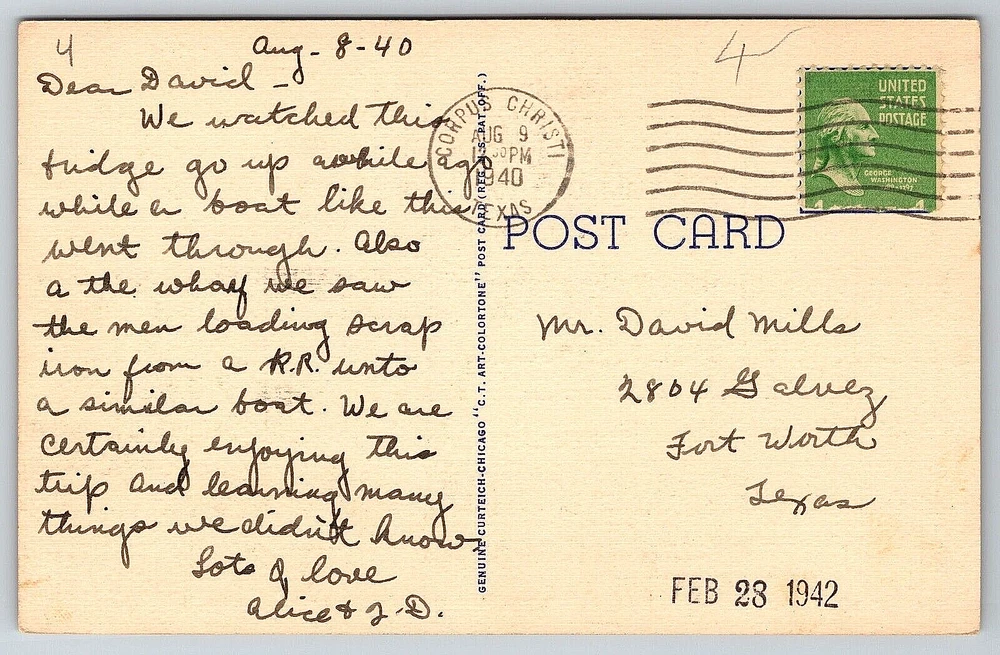 4
Aug - 8 - 40
Dear David -
We watched this
bridge go up awhile ago
while a boat like this
went through. Also
a the wharf we saw
the men loading scrap
iron from a R.R. unto
a similar boat. We are
certainly enjoying this
trip and learning many
things we didn't know.
Lots of love
Alice & J.D.
GENUINE CURTEICH-CHICAGO "C.T. ART-COLORTONE" POST CARD (REG. U.S. PAT. OFF.)
4
CORPUS CHRISTI
AUG 9
PM
1940
TEXAS
UNITED
STATES
POSTAGE
GEORGE
WASHINGTON
POST CARD
Mr. David Mills
2804 Galvez
Fort Worth
Texas
FEB 28 1942